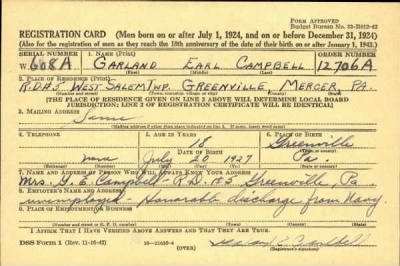 FORM APPROVED
REGISTRATION CARD (Men born on or after July 1, 1924, and on or before December 31, 1924)
(Also for the registration of men as they reach the 18th anniversary of the date of their birth on or after January 1, 1943.)
SERIAL NUMBER 1. NAME (Print) ORDER NUMBER
W. 608A GARLAND EARL CAMPBELL 12706A
(First) (Middle) (Last)
2. PLACE OF RESIDENCE (Print)
R.D #2 WEST SALEM TWP. GREENVILLE MERCER PA.
(Number and street) (Town, township, village, or city) (County) (State)
[THE PLACE OF RESIDENCE GIVEN ON LINE 2 ABOVE WILL DETERMINE LOCAL BOARD
JURISDICTION; LINE 2 OF REGISTRATION CERTIFICATE WILL BE IDENTICAL]
3. MAILING ADDRESS
Same
[Mailing address if other than place indicated on line 2. If same, insert word same]
4. TELEPHONE 5. AGE IN YEARS 6. PLACE OF BIRTH
18 Greenville
DATE OF BIRTH
none July 20 1927 Pa.
7. NAME AND ADDRESS OF PERSON WHO WILL ALWAYS KNOW YOUR ADDRESS
Mrs. G. E. Campbell R.D. #2 Greenville, Pa.
8. EMPLOYER'S NAME AND ADDRESS
unemployed - Honorable discharge from Navy
9. PLACE OF EMPLOYMENT OR BUSINESS
(Number and street or R. F. D. number) (Town) (County) (State)
I AFFIRM THAT I HAVE VERIFIED ABOVE ANSWERS AND THAT THEY ARE TRUE.
DSS Form 1 (Rev. 11-16-42) (OVER)